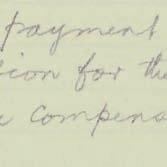 payment
tion for the
compens